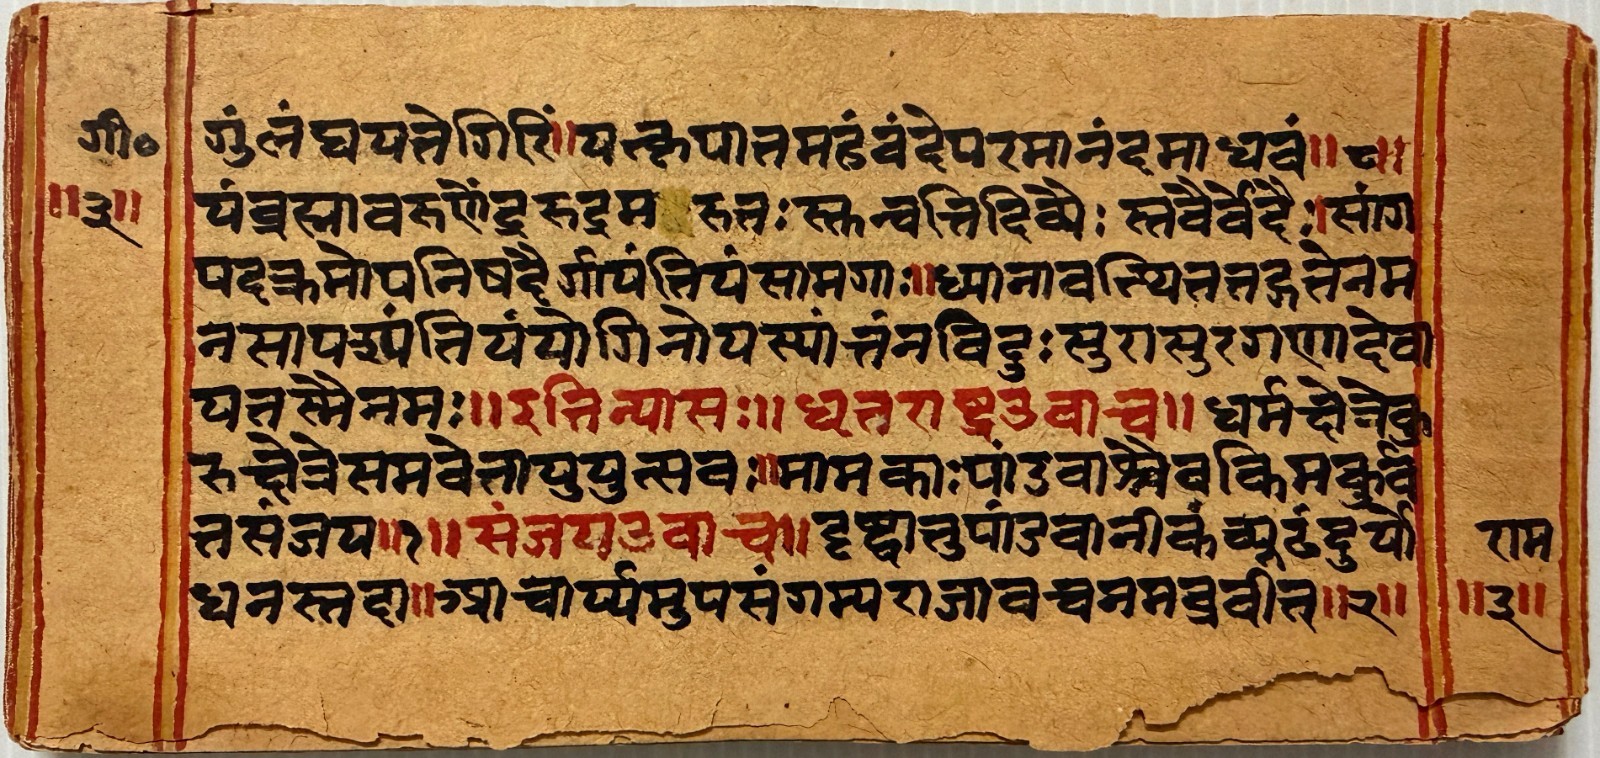 गी०
॥३॥
गुंलंघयतेगिरिं॥यत्कृपातमहंवंदेपरमानंदमाधवं॥८॥
यंब्रह्मावरुणेंद्ररुद्रमरुतः स्तुन्वन्तिदिव्यैः स्तवैर्वेदैः।सांग
पदक्रमोपनिषदैर्गायंतियंसामगाः॥ध्यानावस्थिततद्गतेनम
नसापश्यंतियंयोगिनोयस्यांतंनविदुः सुरासुरगणादेवा
यतस्मैनमः॥इतिन्यासः॥धृतराष्ट्रउवाच॥धर्मक्षेत्रेकु
रुक्षेत्रेसमवेतायुयुत्सवः॥मामकाःपांडवाश्चैवकिमकुर्व
तसंजय॥१॥संजयउवाच॥दृष्ट्वातुपांडवानीकंव्यूढंदुर्यो
धनस्तदा॥आचार्य्यमुपसंगम्यराजावचनमब्रवीत॥२॥
राम
॥३॥